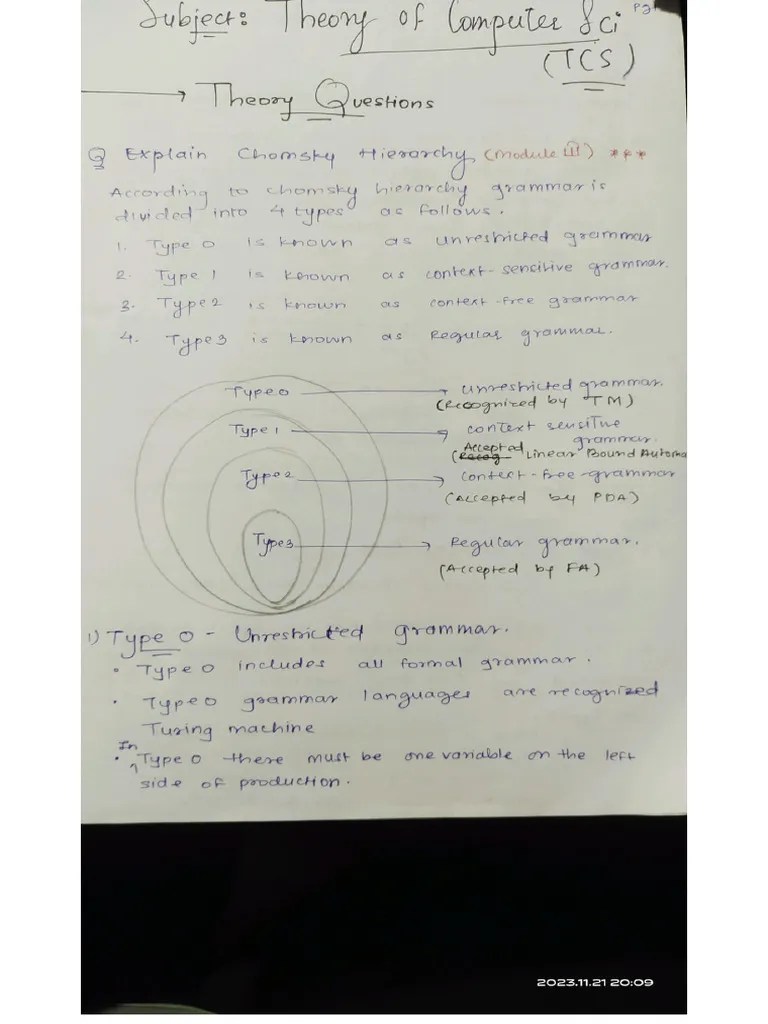 Subject: Theory of Computer Sci
(TCS)
Theory Questions
Q Explain Chomsky Hierarchy (Module III) ***
According to chomsky hierarchy grammar is
divided into 4 types as follows.
1. Type 0 is known as unrestricted grammar
2. Type 1 is known as context-sensitive grammar.
3. Type 2 is known as context-free grammar
4. Type 3 is known as Regular grammar.
Type 0 unrestricted grammar.
(Recognized by TM)
Type 1 context sensitive
grammar.
Accepted
(Recog Linear Bound Automa
Type 2 context-free-grammar
(Accepted by PDA)
Type 3 Regular grammar.
(Accepted by FA)
1) Type 0 - Unrestricted grammar.
• Type 0 includes all formal grammar.
• Type 0 grammar languages are recognized
Turing machine
In
• Type 0 there must be one variable on the left
side of production.
2023.11.21 20:09